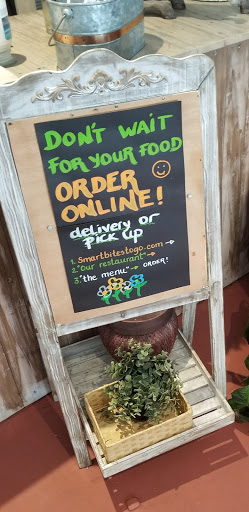 DON'T WAIT
FOR YOUR FOOD
ORDER
ONLINE!
delivery or
PICK UP
1. Smartbitestogo.com →
2. "Our restaurant" →
3. "the menu" → ORDER!